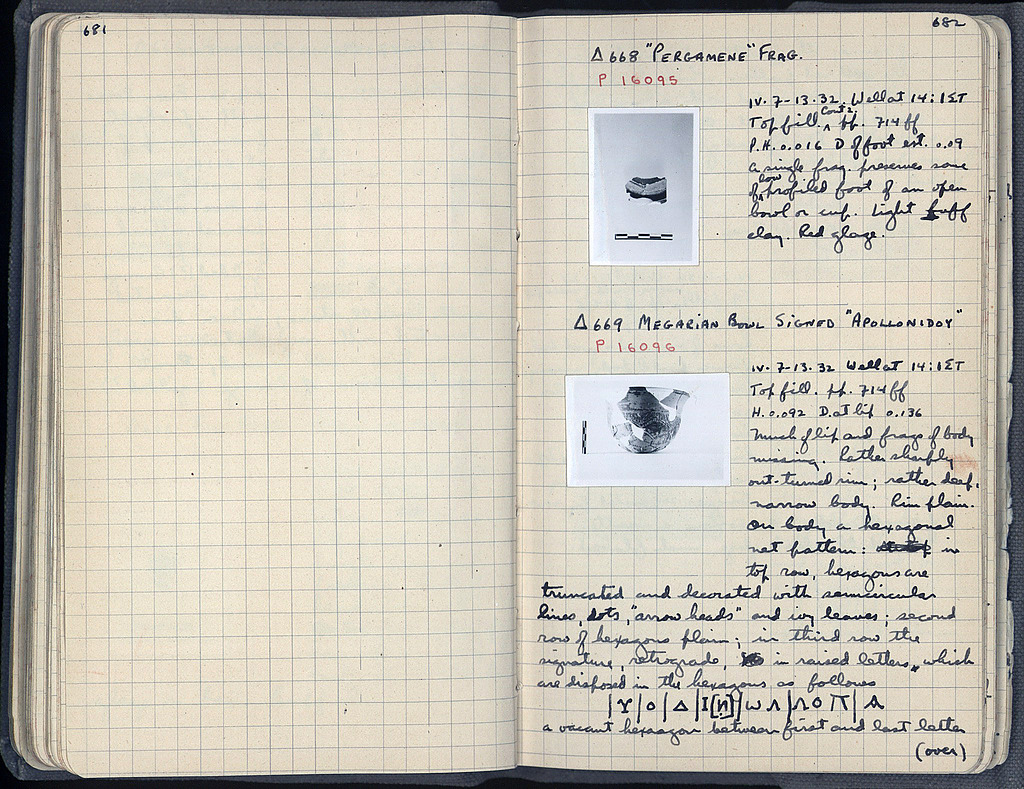 681
682
Δ 668 "PERGAMENE" FRAG.
P 16095
IV. 7-13.32. Well at 14:1ΣΤ
Cont2.
Top fill. ^ pp. 714 ff
P.H. 0.016 D of foot est. 0.09
A single frag. preserves some
low
of ^ profiled foot of an open
bowl or cup. Light buff
clay. Red glaze.
Δ 669 MEGARIAN BOWL SIGNED "APOLLONIDOY"
P 16096
IV. 7-13.32 Well at 14:1ΣΤ
Top fill. pp. 714 ff
H. 0.092 D. at lip 0.136
Much of lip and frags of body
missing. Rather sharply
out-turned rim; rather deep,
narrow body. Rim plain.
On body a hexagonal
net pattern: in
top row, hexagons are
truncated and decorated with semicircular
lines, dots, "arrow heads" and ivy leaves; second
row of hexagons plain; in third row the
signature, retrograde, in raised letters, which
are disposed in the hexagons as follows
|Υ|Ο|Δ|Ι[И]|ωΛ|ΛΟ|Π|Α
a vacant hexagon between first and last letter
(over)